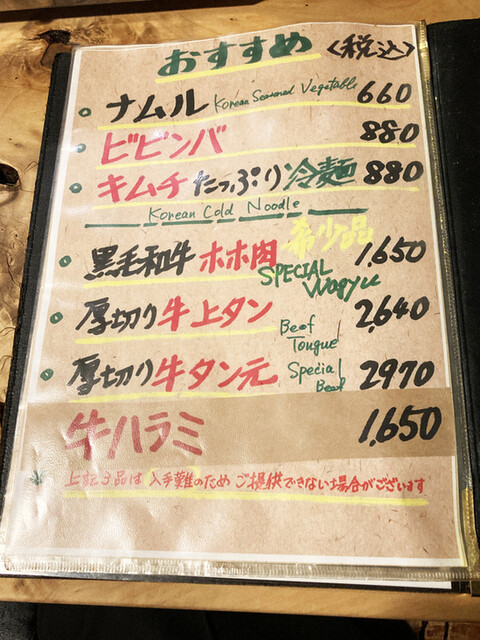 おすすめ 〈税込〉
ナムル Korean Seasoned Vegetable 660
ビビンバ 880
キムチたっぷり冷麺 880
Korean Cold Noodle
黒毛和牛 ホホ肉 希少品 1,650
SPECIAL Wagyu
厚切り牛上タン 2,640
Beef Tongue
厚切り牛タン元 Special Beef 2970
牛ハラミ 1,650
上記3品は入手難のためご提供できない場合がございます